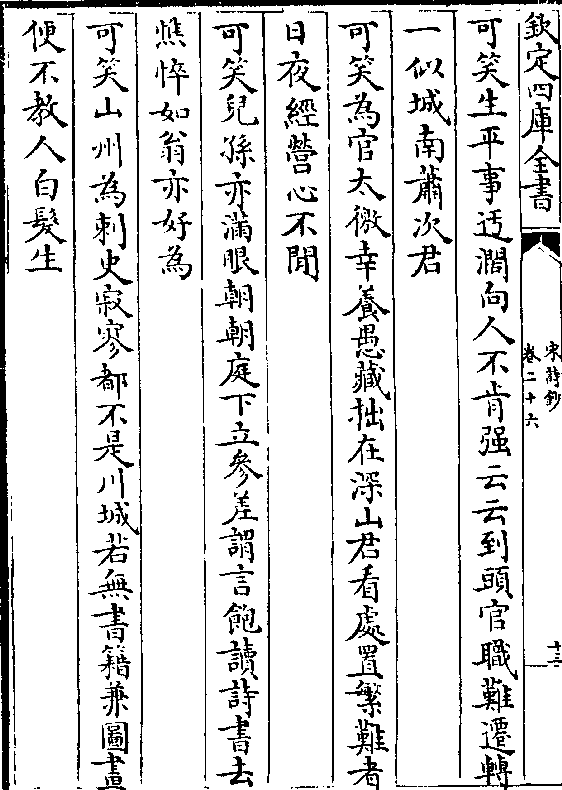 欽定四庫全書
宋詩鈔
卷二十六
十三
可笑生平事迃濶向人不肯强云云到頭官職難遷轉
一似城南蕭次君
可笑為官太徼幸養愚藏拙在深山君看處置繁難者
日夜經營心不閒
可笑兒孫亦滿眼朝朝庭下立參差謂言飽讀詩書去
憔悴如翁亦好為
可笑山州為刺史寂寥都不是川城若無書籍兼圖畫
便不教人白髮生